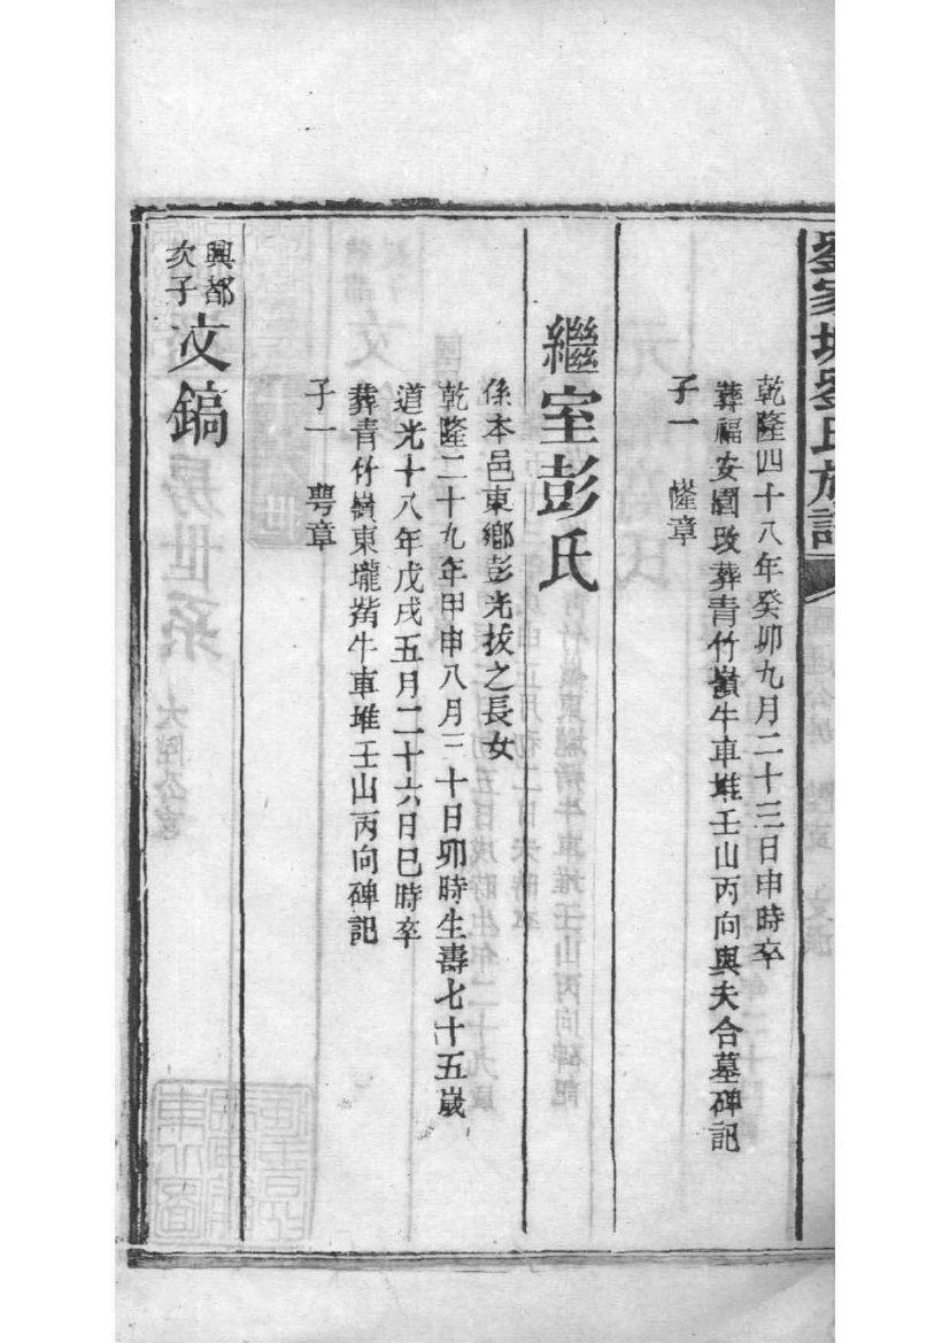 劉家塅劉氏族譜
乾隆四十八年癸卯九月二十三日申時卒
葬福安園改葬青竹嶺牛車堆壬山丙向與夫合墓碑記
子一 隆章
繼室彭氏
係本邑東鄉彭光拔之長女
乾隆二十九年甲申八月三十日卯時生壽七十五歲
道光十八年戊戌五月二十六日巳時卒
葬青竹嶺東壠嘴牛車堆壬山丙向碑記
子一 粵章
興都
次子
文鎬